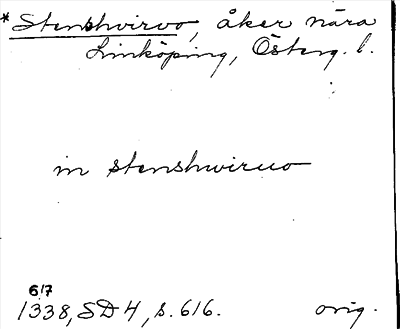 *Stenshvirvo, åker nära
Linköping, Österg. l.
in stenshwiruo
6/7
1338, SD 4, s. 616.
orig.